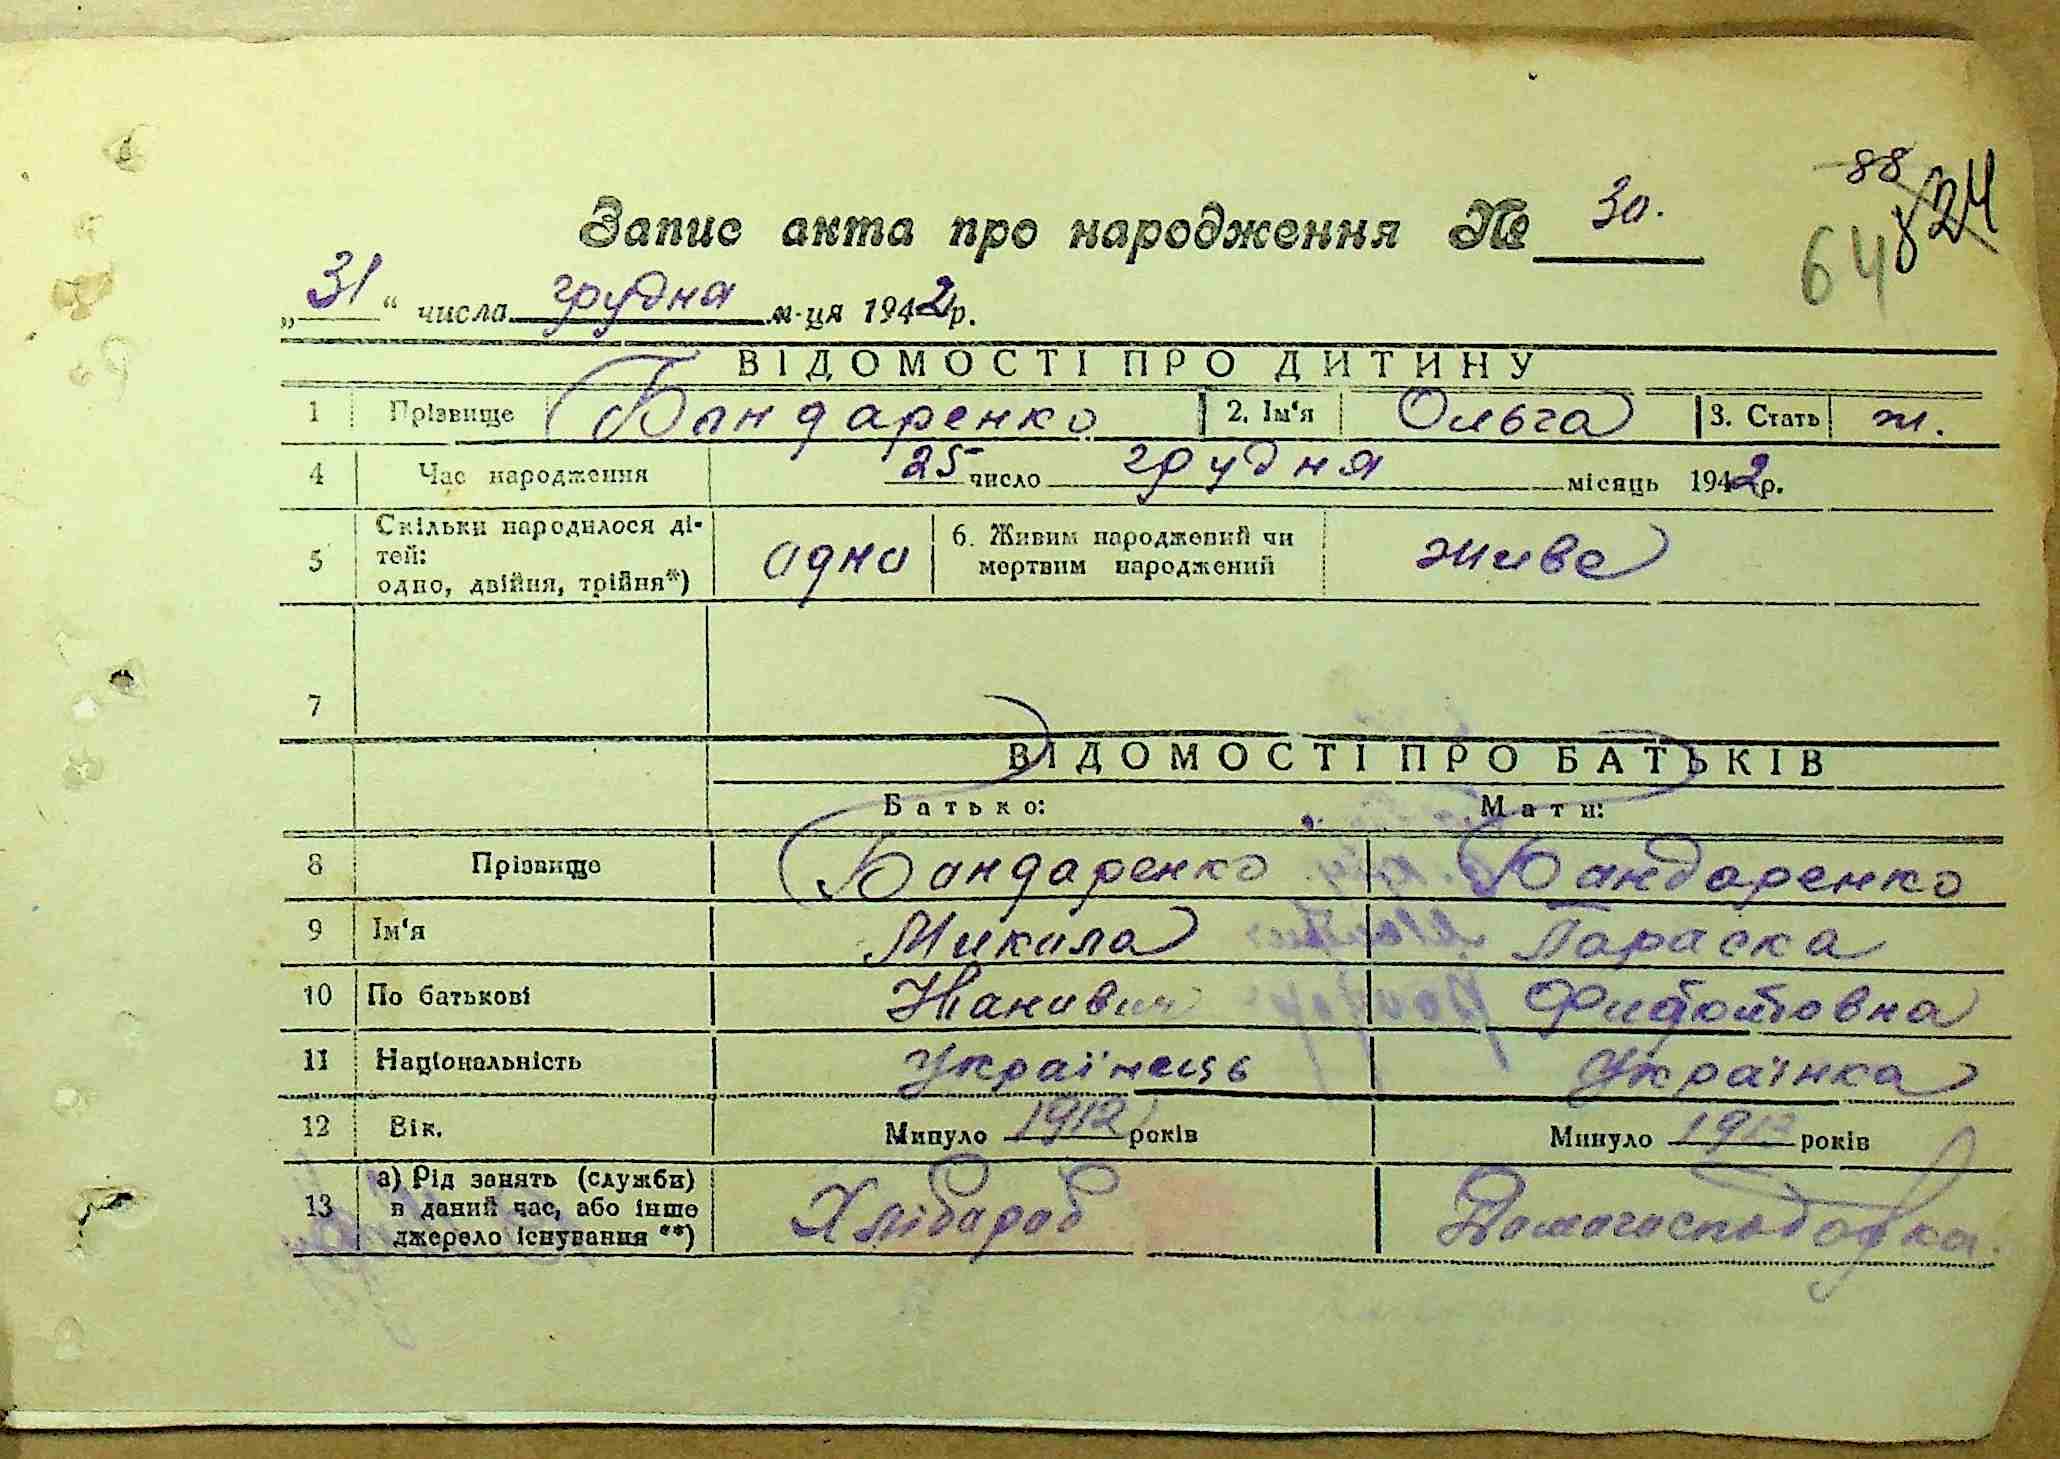 88
824
64
Запис акта про народження № 30.
„31“ числа грудня м-ця 1942 р.
ВІДОМОСТІ ПРО ДИТИНУ
1 Прізвище Бондаренко 2. Ім'я Ольга 3. Стать ж.
4 Час народження 25 число грудня місяць 1942 р.
5 Скільки народилося ді-
тей:
одно, двійня, трійня*) одно 6. Живим народжений чи
мертвим народжений живе
7
ВІДОМОСТІ ПРО БАТЬКІВ
Батько: Мати:
8 Прізвище Бондаренко Бондаренко
9 Ім'я Микола Параска
10 По батькові Федотовна
11 Національність Українець Українка
12 Вік. Минуло 1912 років Минуло 1912 років
13 а) Рід занять (служби)
в даний час, або інше
джерело існування **) Хлібороб Домогосподарка.